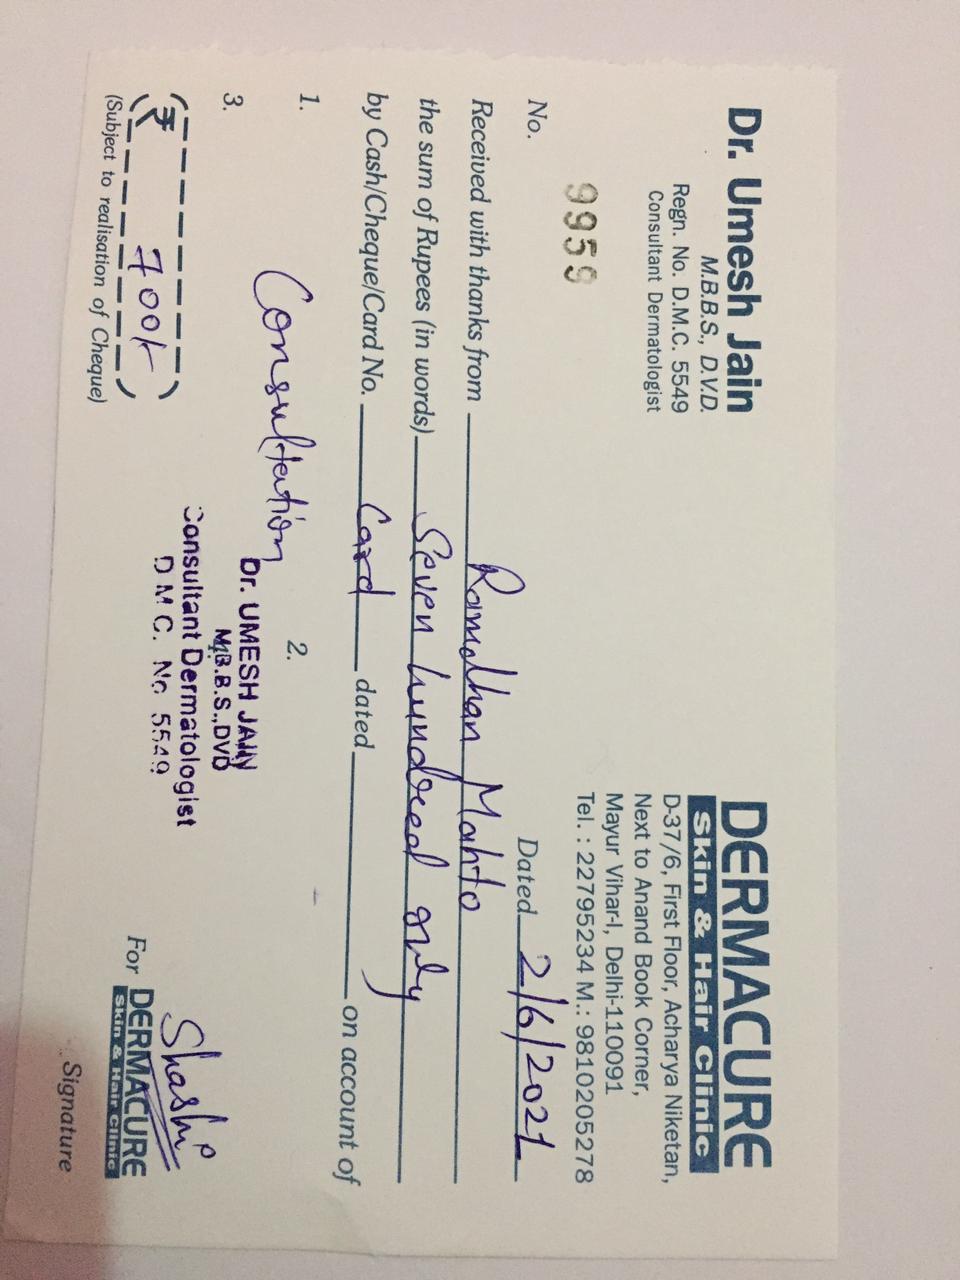 Dr. Umesh Jain
M.B.B.S., D.V.D.
Regn. No. D.M.C. 5549
Consultant Dermatologist
DERMACURE
Skin & Hair Clinic
D-37/6, First Floor, Acharya Niketan,
Next to Anand Book Corner,
Mayur Vihar-I, Delhi-110091
Tel. : 22795234 M.: 9810205278
9959
No. Dated 2/6/2021
Received with thanks from Ramdhan Mahto
the sum of Rupees (in words) Seven hundred only
by Cash/Cheque/Card No. Card dated on account of
1. Consultation 2.
3.
Dr. UMESH JAIN
M.B.B.S.,DVD
Consultant Dermatologist
D M C. No 5549
₹ 700/-
(Subject to realisation of Cheque)
Shashi
For DERMACURE
Skin & Hair Clinic
Signature